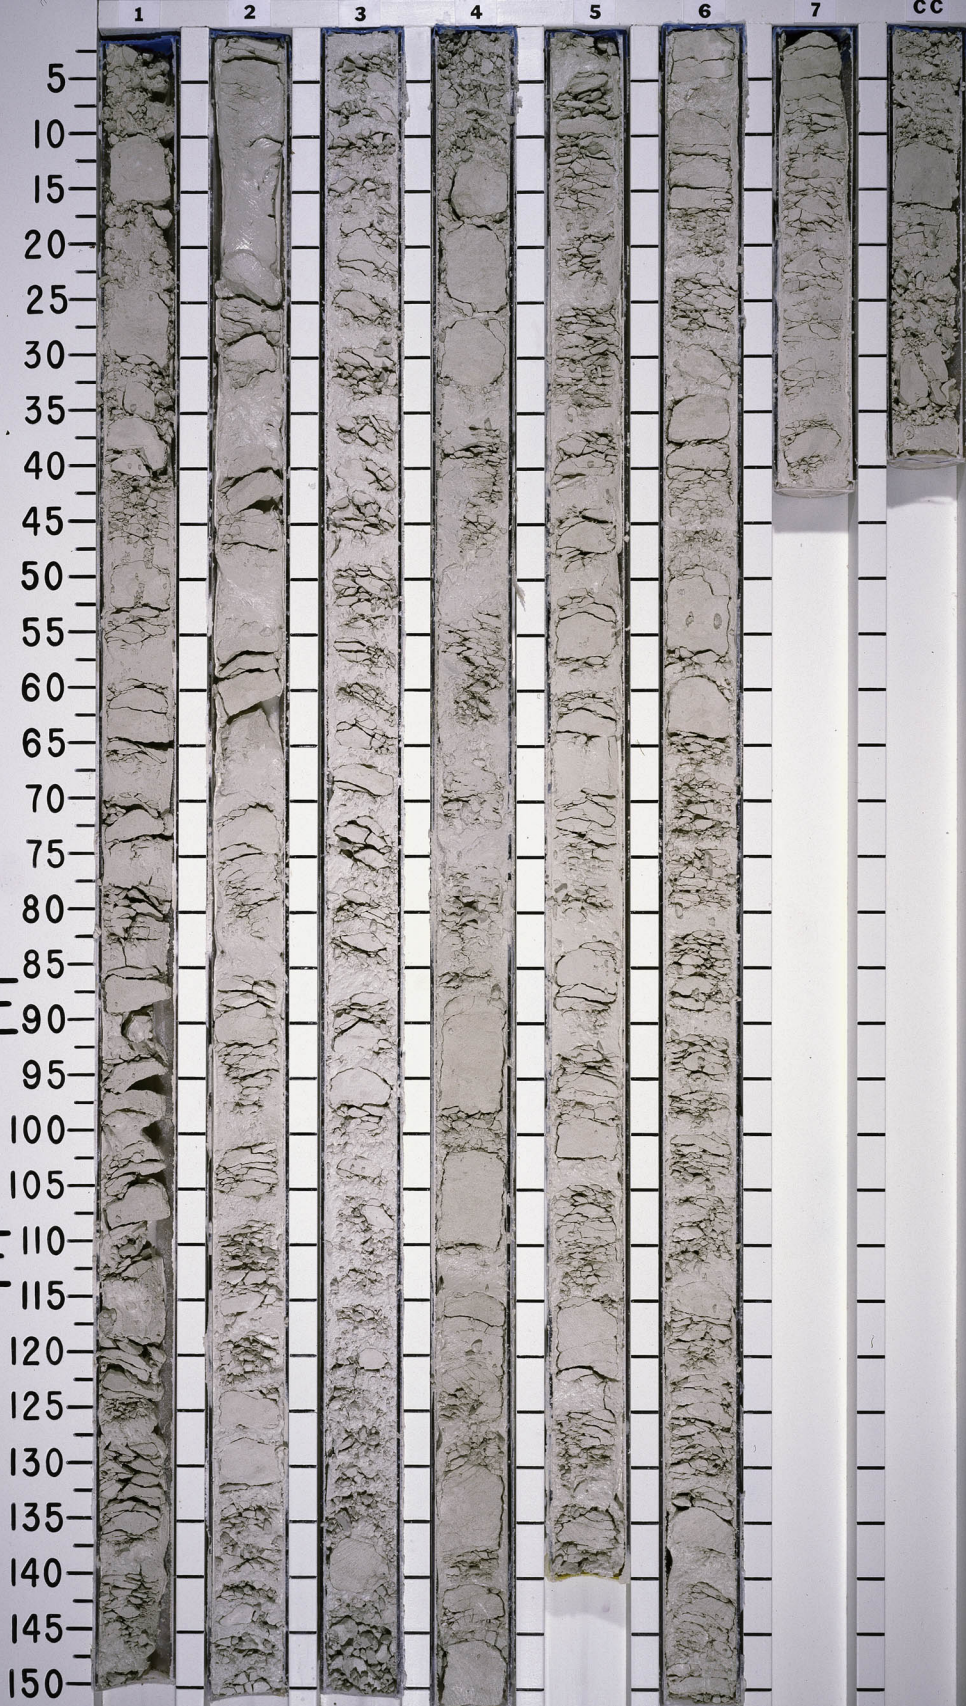 1 2 3 4 5 6 7 CC
5
10
15
20
25
30
35
40
45
50
55
60
65
70
75
80
85
90
95
100
105
110
115
120
125
130
135
140
145
150